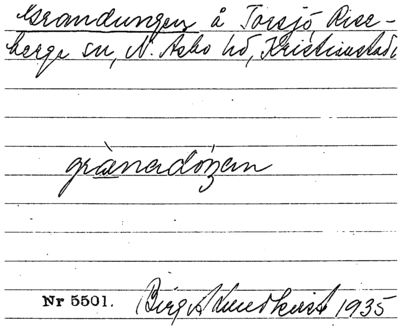 Grandungen å Torsjö, Rise-
berga sn, N. Åsbo hd, Kristianstads
grànadóŋan
Nr 5501. Birgit Lundkvist 1935